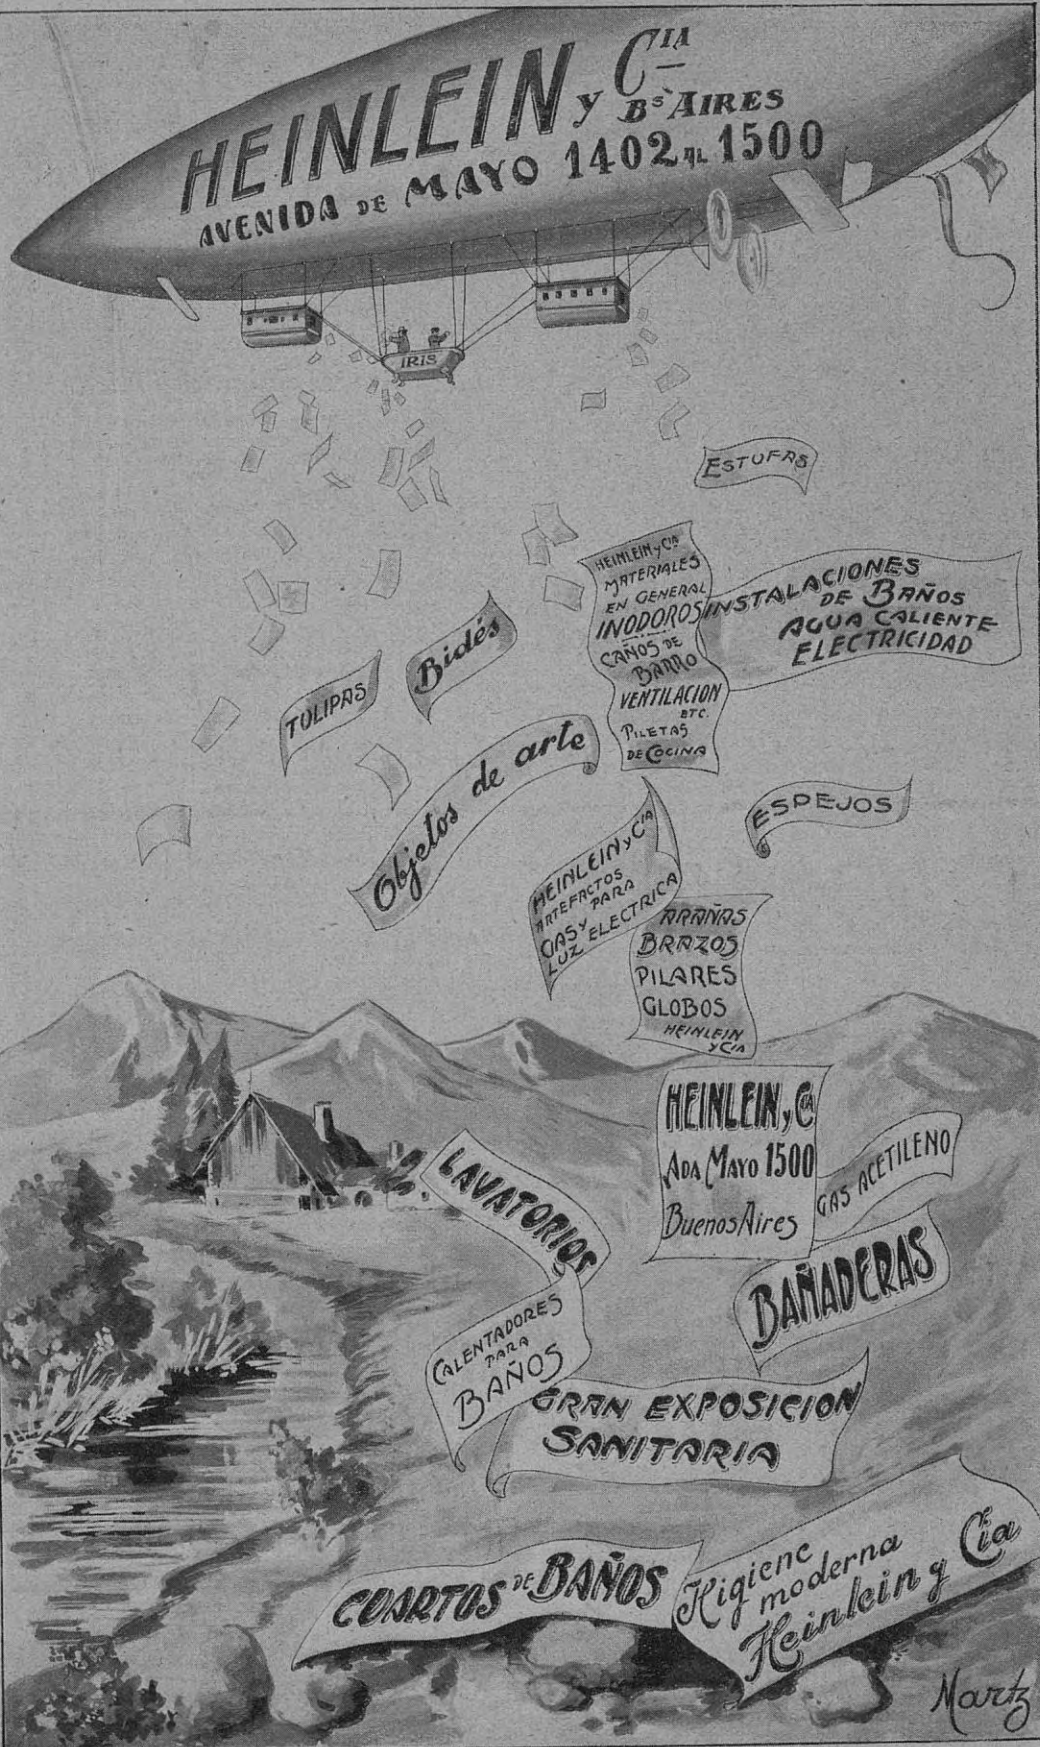 HEINLEIN y CIA
Bs AIRES
AVENIDA DE MAYO 1402 AL 1500
IRIS
ESTUFAS
HEINLEIN y CIA
MATERIALES
EN GENERAL
INODOROS
CAÑOS DE
BARRO
VENTILACION
ETC.
PILETAS
DE COCINA
INSTALACIONES
DE BAÑOS
AGUA CALIENTE
ELECTRICIDAD
Bidés
TULIPAS
Objetos de arte
ESPEJOS
HEINLEIN y CIA
ARTEFACTOS
PARA
GAS Y
LUZ ELECTRICA
ARAÑAS
BRAZOS
PILARES
GLOBOS
HEINLEIN
y CIA
HEINLEIN y CIA
ADA MAYO 1500
Buenos Aires
GAS ACETILENO
LAVATORIOS
BAÑADERAS
CALENTADORES
PARA
BAÑOS
GRAN EXPOSICION
SANITARIA
CUARTOS DE BAÑOS
Higiene
moderna
Heinlein y Cia
Martz